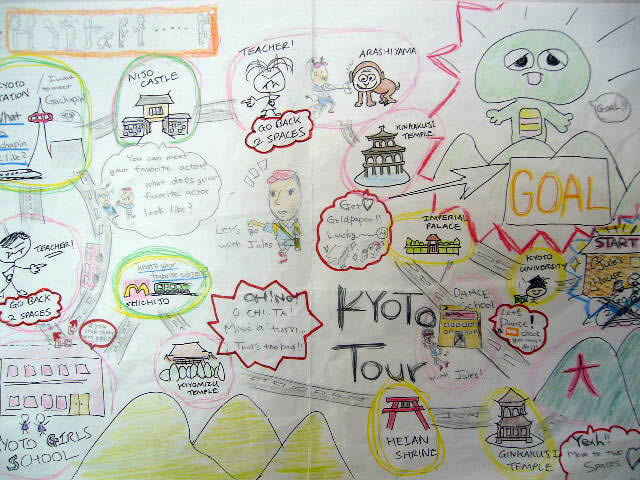 KYOTO
STATION
I want
to meet
Gachapin
What
Gachapin
like?
NIJO
CASTLE
TEACHER!
GO BACK
2 SPACES
ARASHIYAMA
KINKAKUSI
TEMPLE
GOAL!!
GOAL
You can meet
your favorite actor!
what does your
favorite actor
look like?
Let's go
with Jules
Get
Goldpaper!!
Lucky
IMPERIAL
PALACE
KYOTO
UNIVERSITY
START
TEACHER!
GO BACK
2 SPACES
what's your
favorite subject
SHICHIJO
OH! No!
O. CHI. TA!
Miss a turn...
That's too bad!!
KYOTO
TOUR
DANCE
SCHOOL
Let's
Dance!
with Jules!
KIYOMIZU
TEMPLE
HEIAN
SHRINE
GINKAKUSI
TEMPLE
大
Yeah!!
Move to two
SPACES
KYOTO GIRLS
SCHOOL